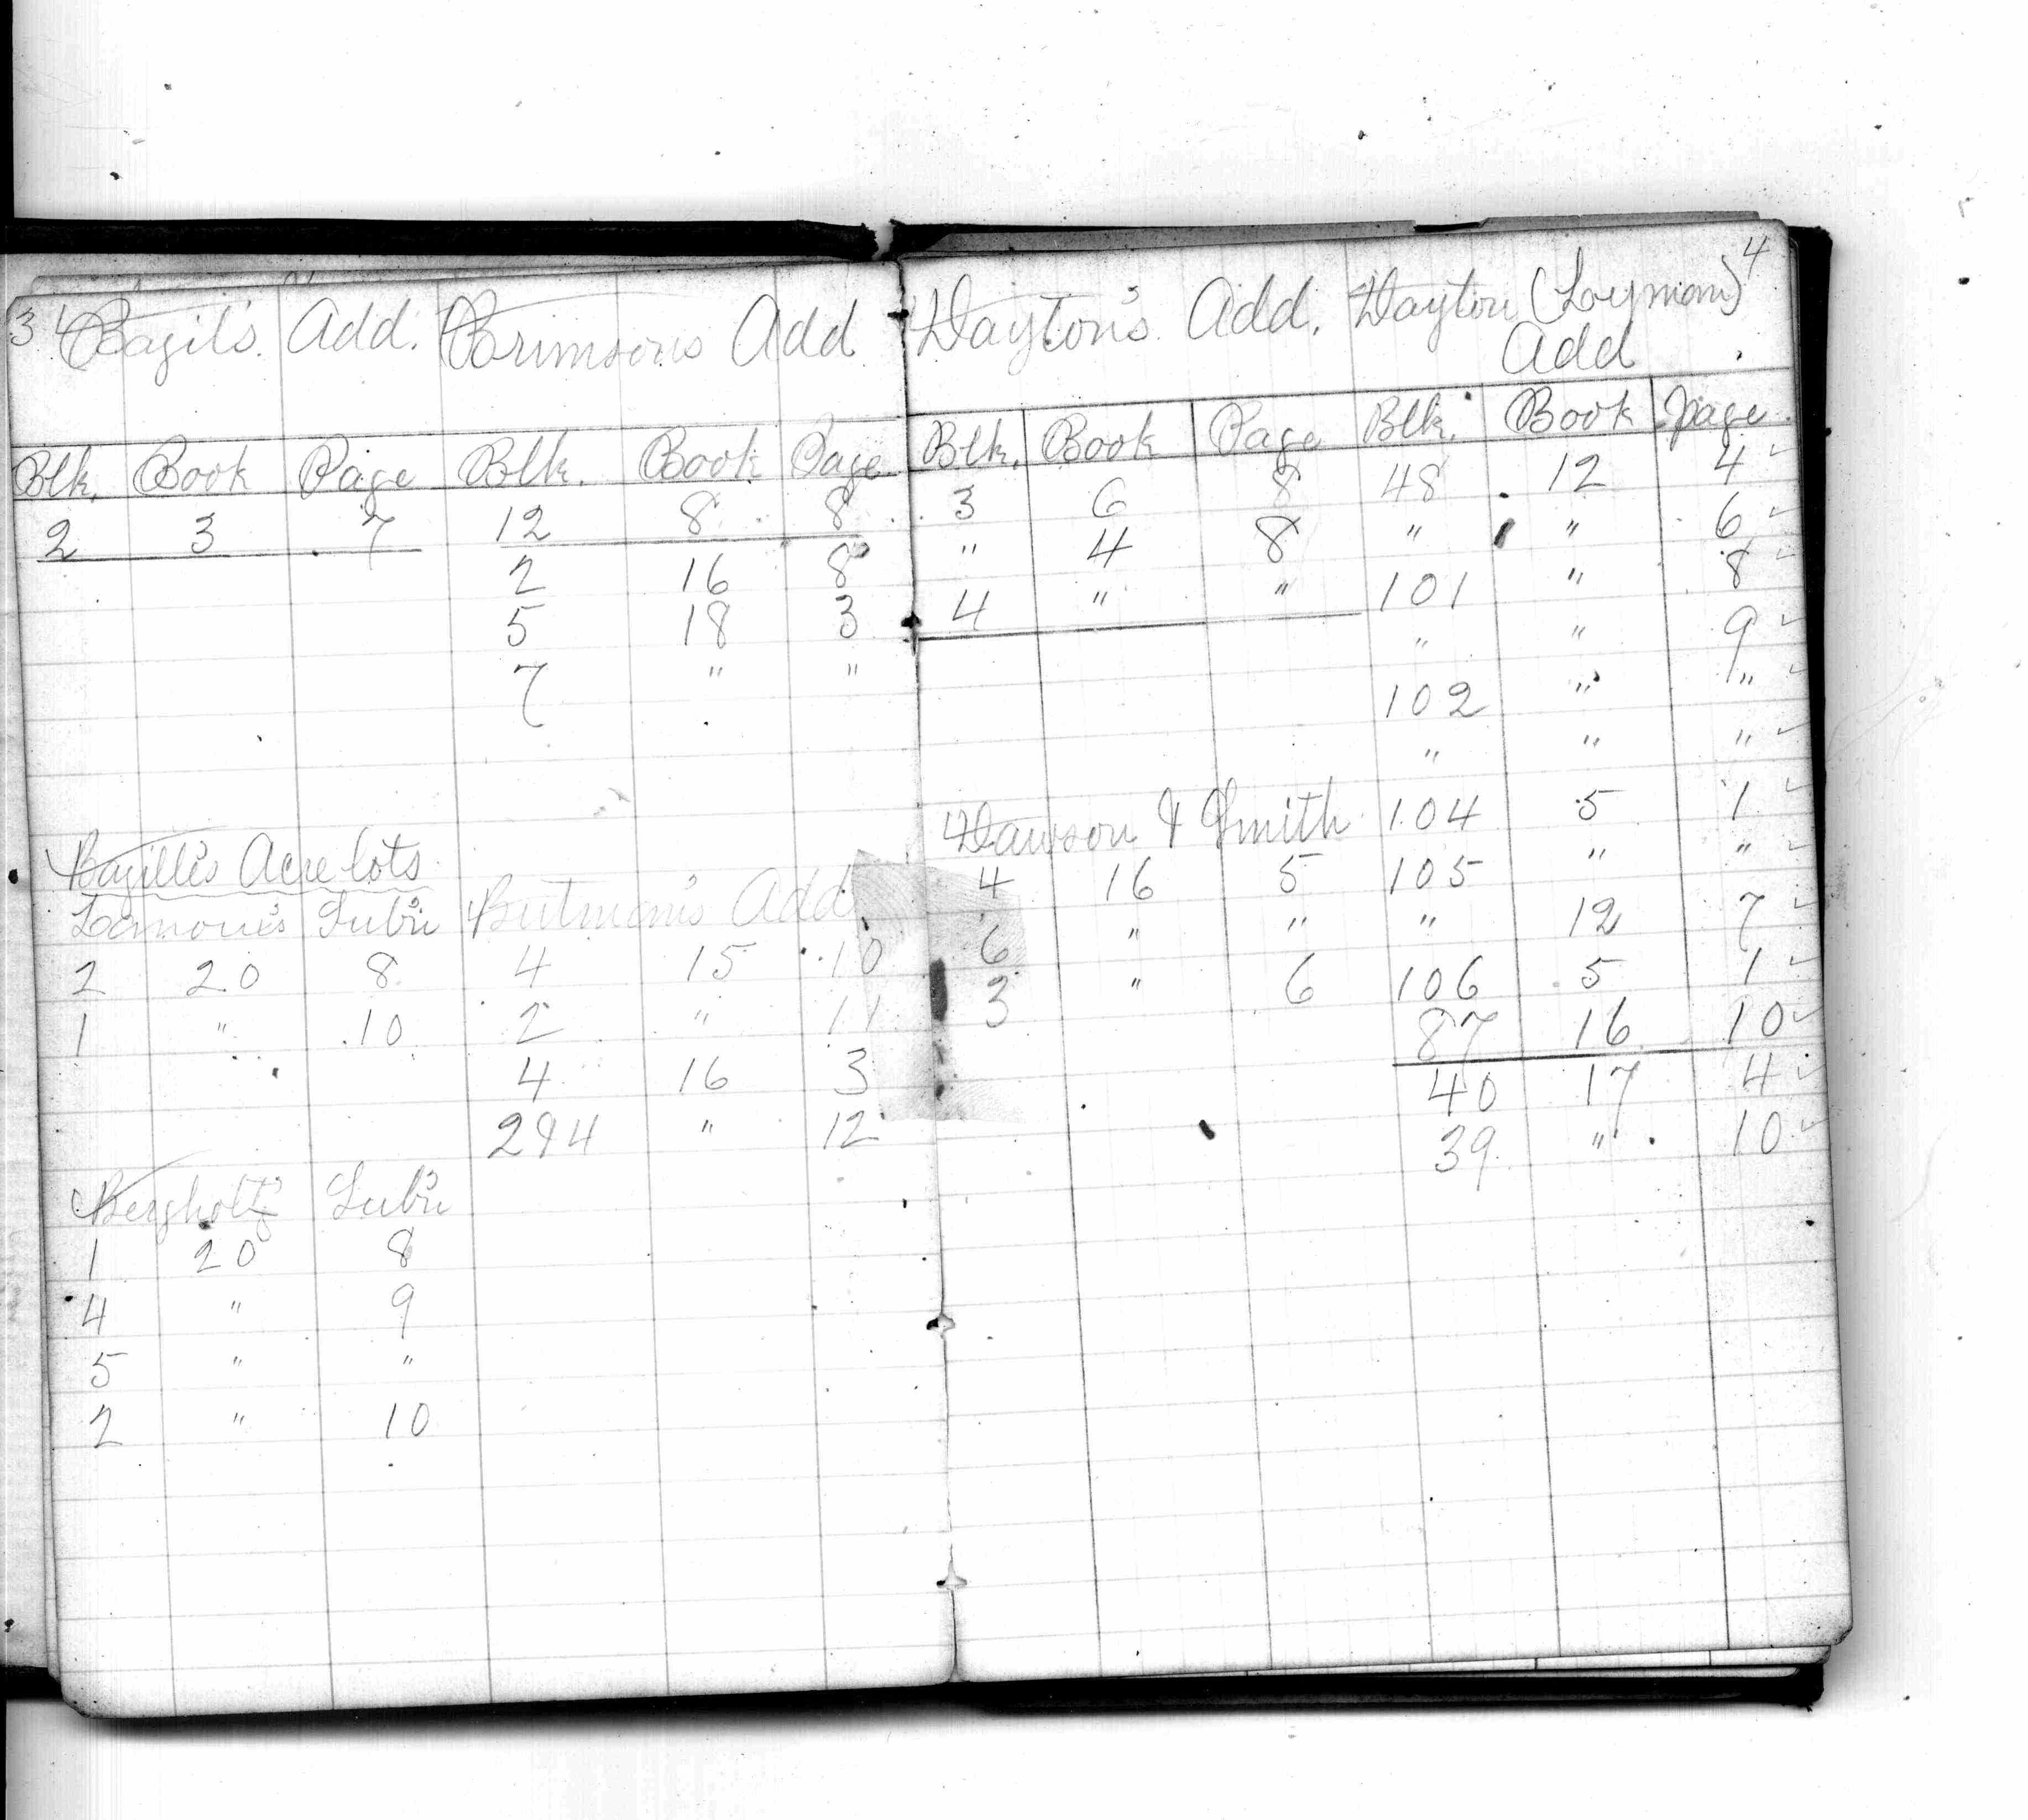 3
Bazil's Add. Brimsons Add
Blk. Book Page Blk. Book Page
2 3 7 12 8 8
2 16 8
5 18 3
7 " "
Bazille's Acre lots
Subn Butman's Add
2 20 8 4 15 10
1 " 10 2 " 11
4 16 3
2 9 4 " 12
Bergholtz Subn
1 20 8
4 " 9
5 " "
2 " 10
4
Dayton's Add. Dayton (Loyman)
Add
Blk. Book Page Blk. Book page
3 6 8 48 12 4 ✓
" 4 8 " " 6 ✓
4 " " 101 " 8 ✓
" " 9 ✓
102 " " ✓
" " " ✓
Dawson & Smith 104 5 1 ✓
4 16 5 105 " " ✓
6 " " " 12 7 ✓
3 " 6 106 5 1 ✓
87 16 10 ✓
40 17 4 ✓
39 " 10 ✓